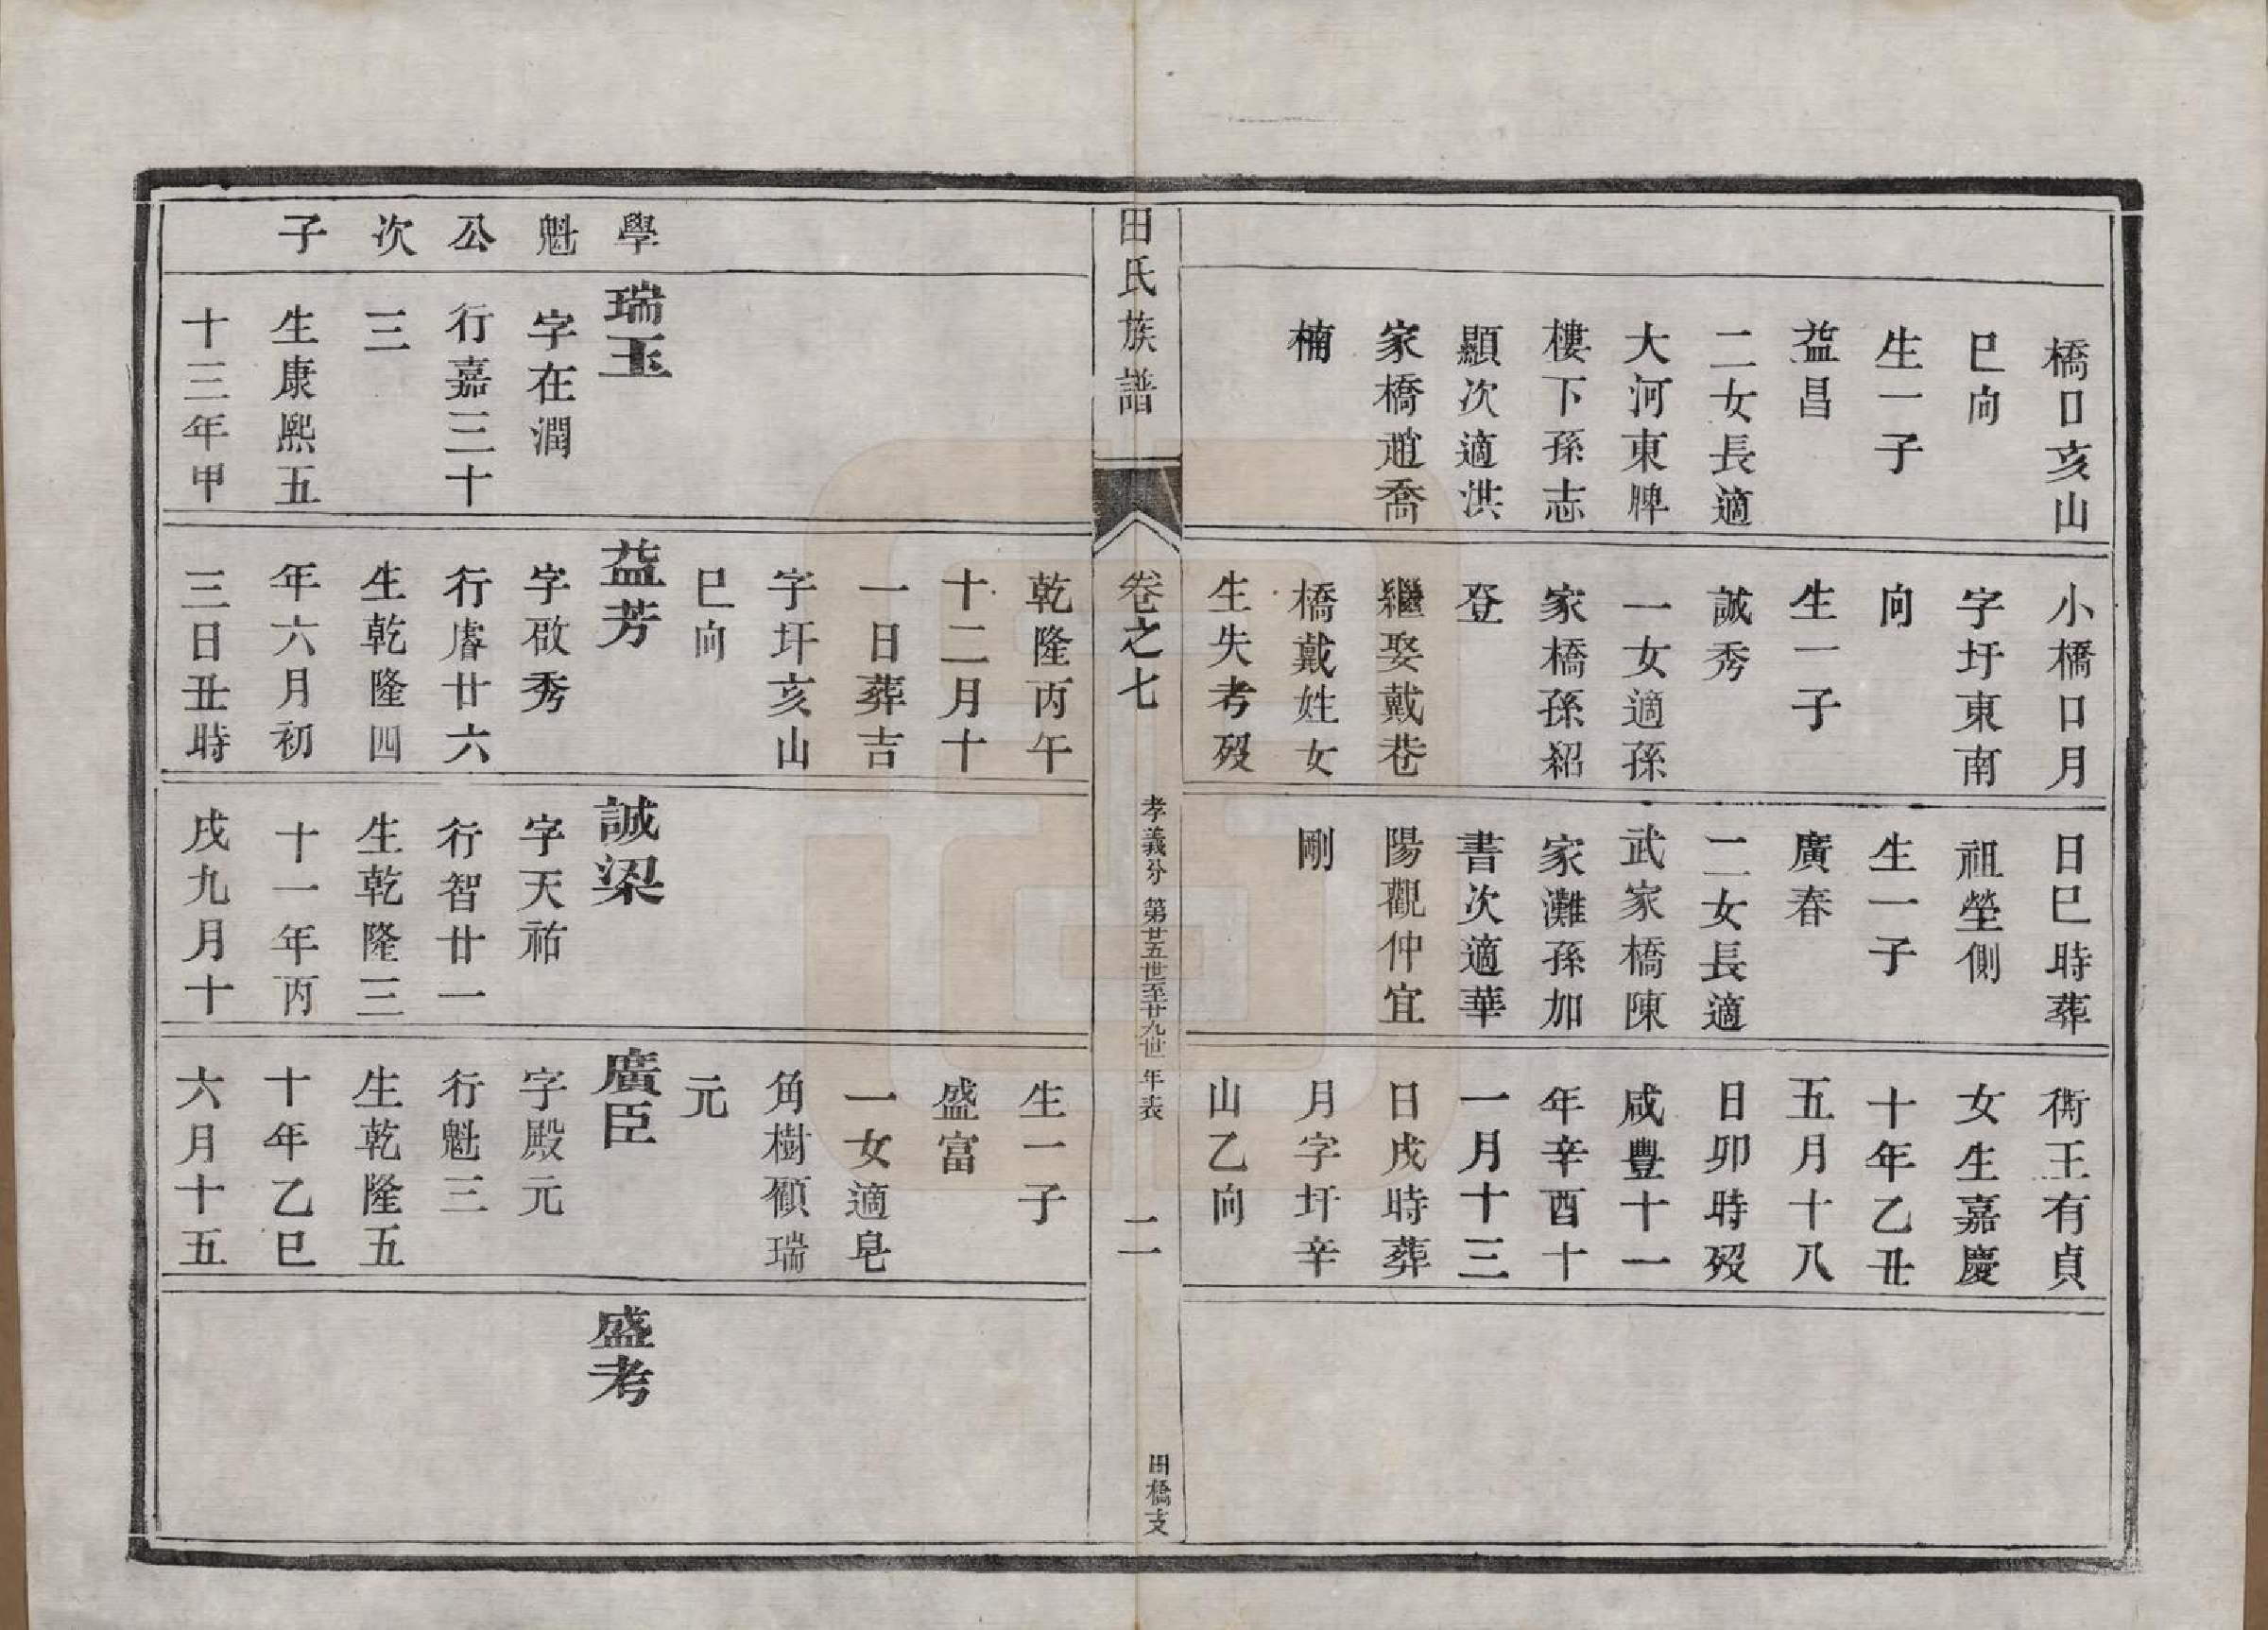 橋口亥山
巳向
生一子
益昌
二女長適
大河東脾
樓下孫志
顯次適洪
家橋趙喬
楠
小橋口月
字圩東南
向
生一子
誠秀
一女適孫
家橋孫紹
登
繼娶戴巷
橋戴姓女
生失考歿
日巳時葬
祖塋側
生一子
廣春
二女長適
武家橋陳
家灘孫加
書次適華
陽觀仲宜
剛
衖王有貞
女生嘉慶
十年乙丑
五月十八
日卯時歿
咸豐十一
年辛酉十
一月十三
日戌時葬
月字圩辛
山乙向
田氏族譜
卷之七
孝義分 第廿五世至廿九世 年表
二
田橋支
學
魁
公
次
子
瑞玉
字在潤
行嘉三十
三
生康熙五
十三年甲
乾隆丙午
十二月十
一日葬吉
字圩亥山
巳向
益芳
字啟秀
行睿廿六
生乾隆四
年六月初
三日丑時
誠梁
字天祐
行智廿一
生乾隆三
十一年丙
戌九月十
生一子
盛富
一女適皂
角樹顧瑞
元
廣臣
字殿元
行魁三
生乾隆五
十年乙巳
六月十五
盛考